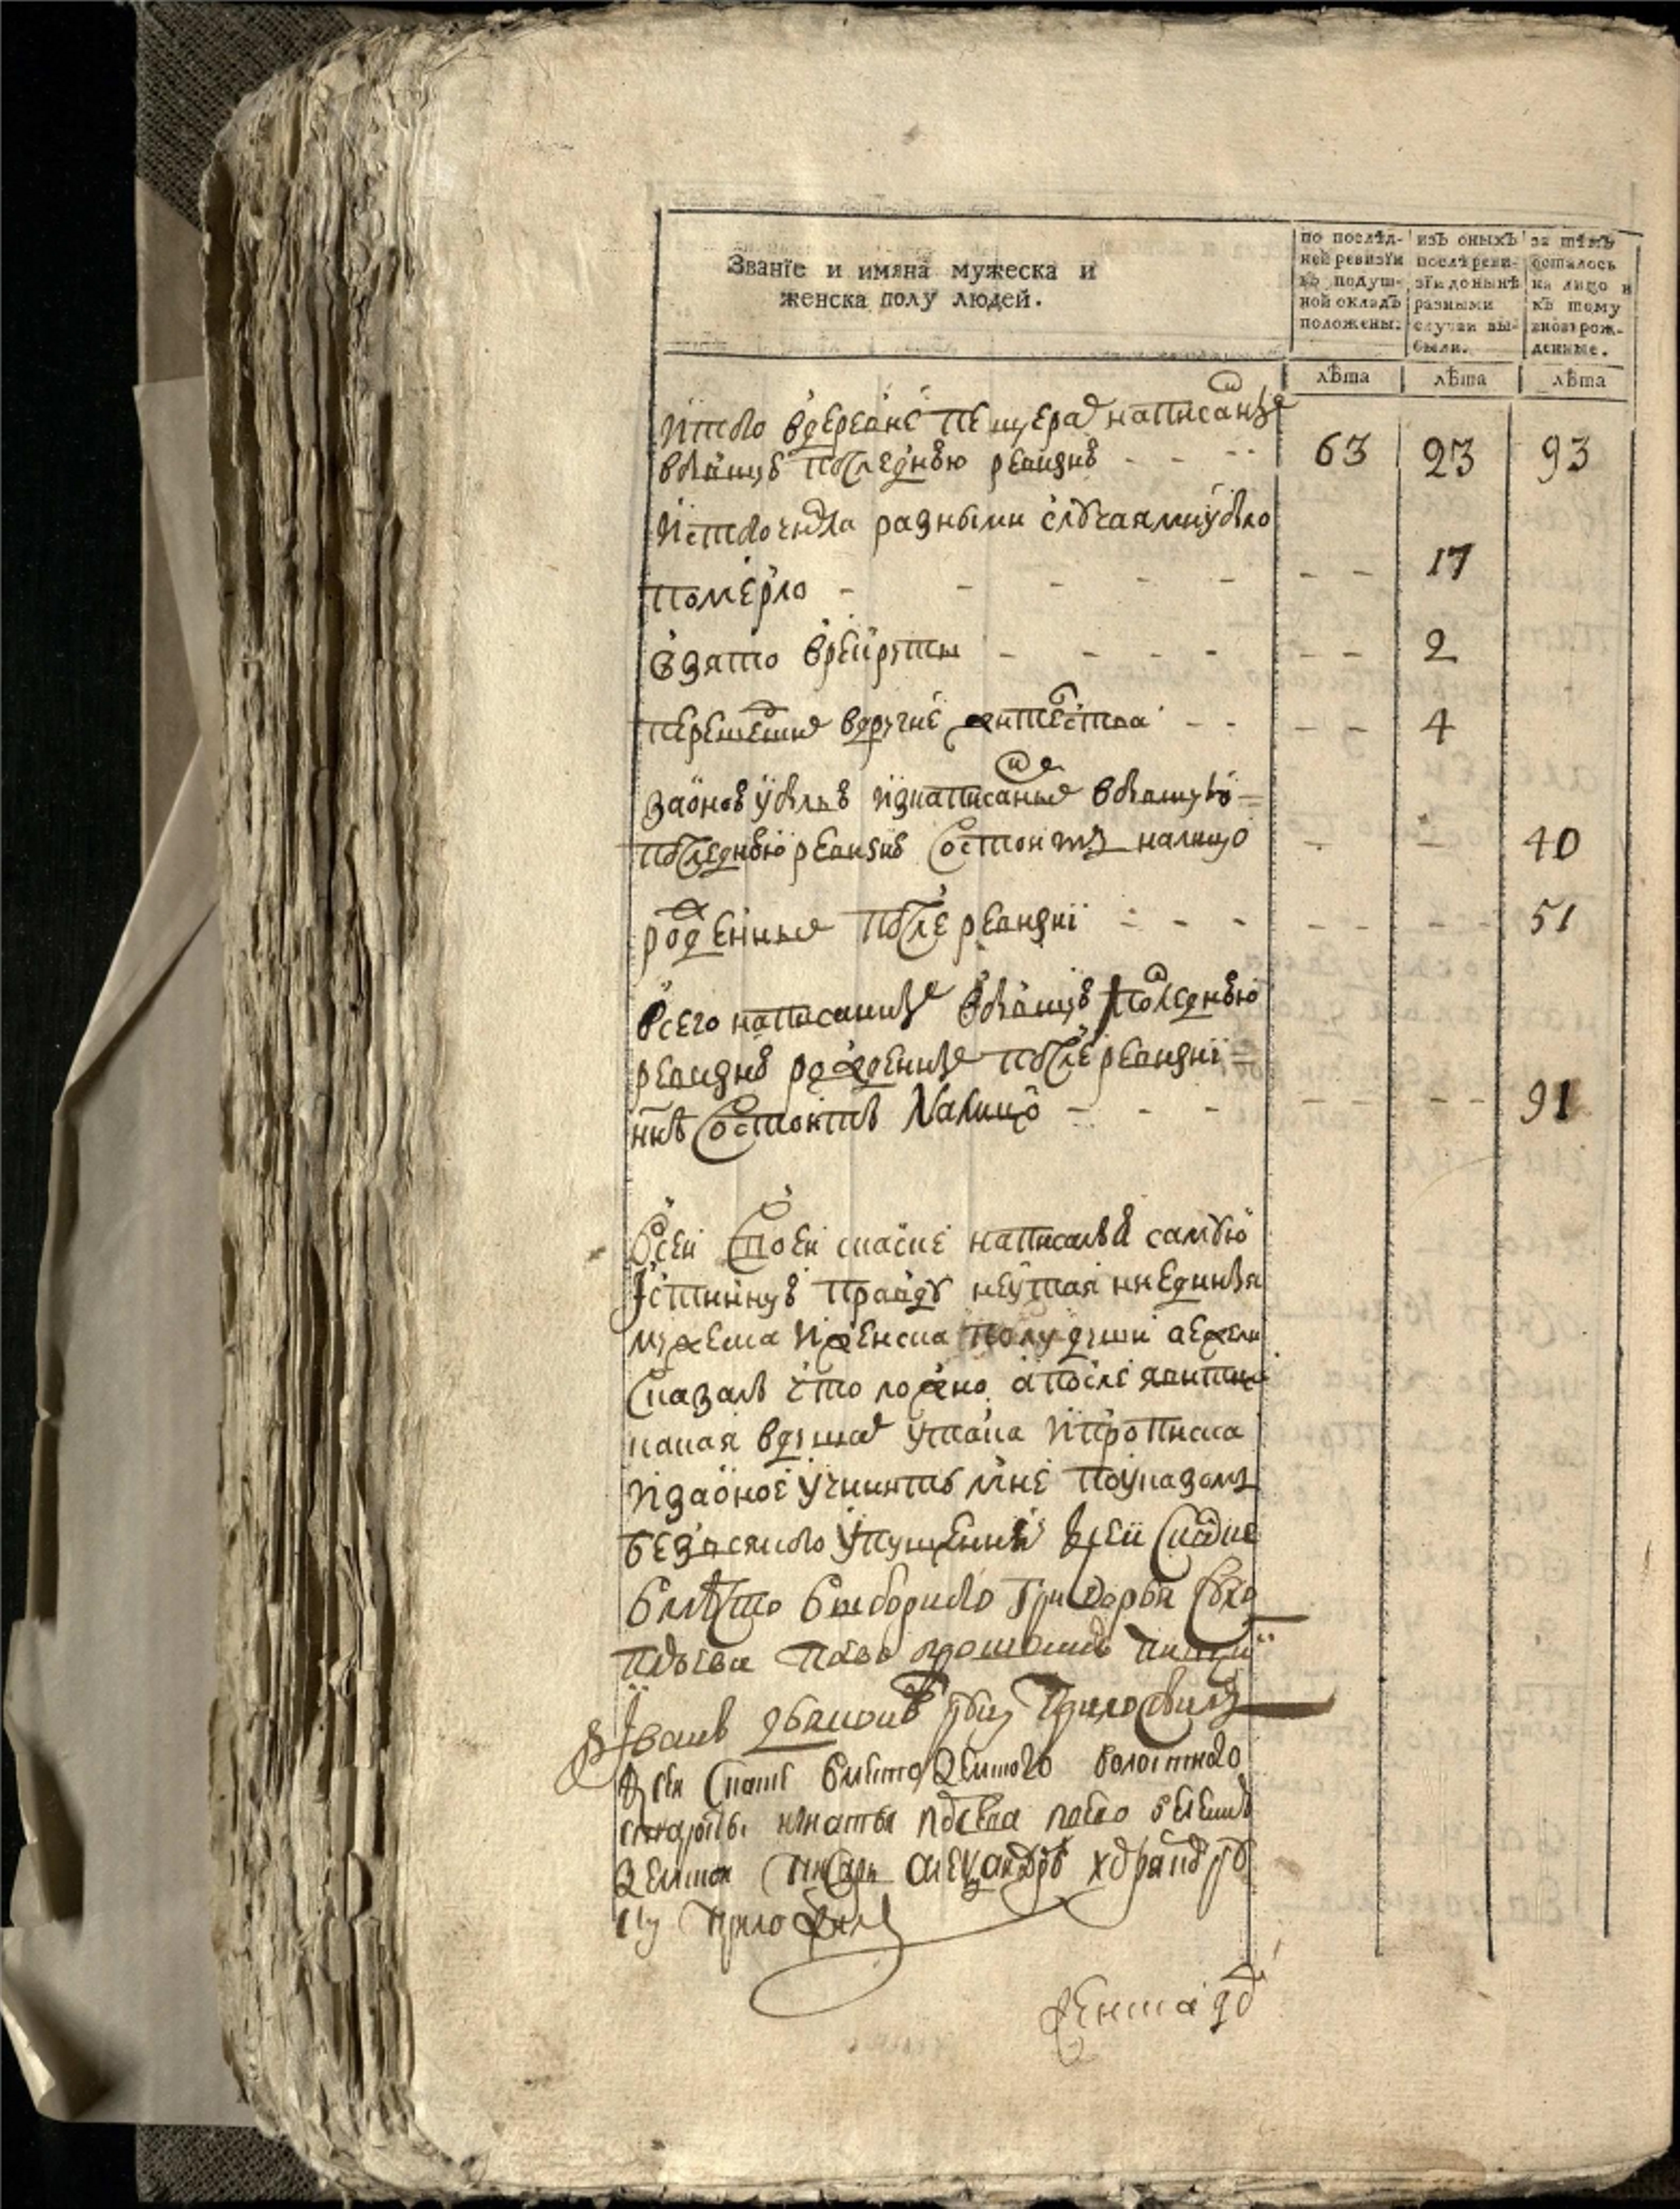 Званїе и имяна мужеска и
женска полу людей.
по послѣд-
ней ревизїи
въ подуш-
ной окладъ
положены.
изъ оныхъ
послѣ реви-
зїи донынѣ
разными
случаи вы-
были.
за тѣмъ
осталось
на лицо и
къ тому
вновь рож-
денные.
лѣта лѣта лѣта
Итого в деревне написанные
в бывшую последнюю ревизию - - - 63 23 93
Ис того числа разными случаями убыло
померло - - - - - - - 17
взято в рекруты - - - - - - 2
перешедших в другие жителства - - - - 4
за оною убылью из написанных в бывшую
последнюю ревизию состоитъ на лицо - - 40
рожденные после ревизии - - - - - - 51
всего написанные в бывшую последнюю
ревизию рожденные после ревизии
ннѣ состоитъ на лицо - - - - - - - 91
В сей моей скаске написалъ я самую
истинную правду не утая ни единыя
мужеска и женска полу души а ежели
сказалъ что ложно а после явитца
какая в душах утайка и прописка
и за оное учинить мне по указомъ
без всякого упущения к сей скаске
вмѣсто выборного Григорья
ево прошением
Иванъ руку приложилъ
к сей скаске вместо земского волостного
старосты Игнатья ево велением
земской писарь александръ
руку приложил